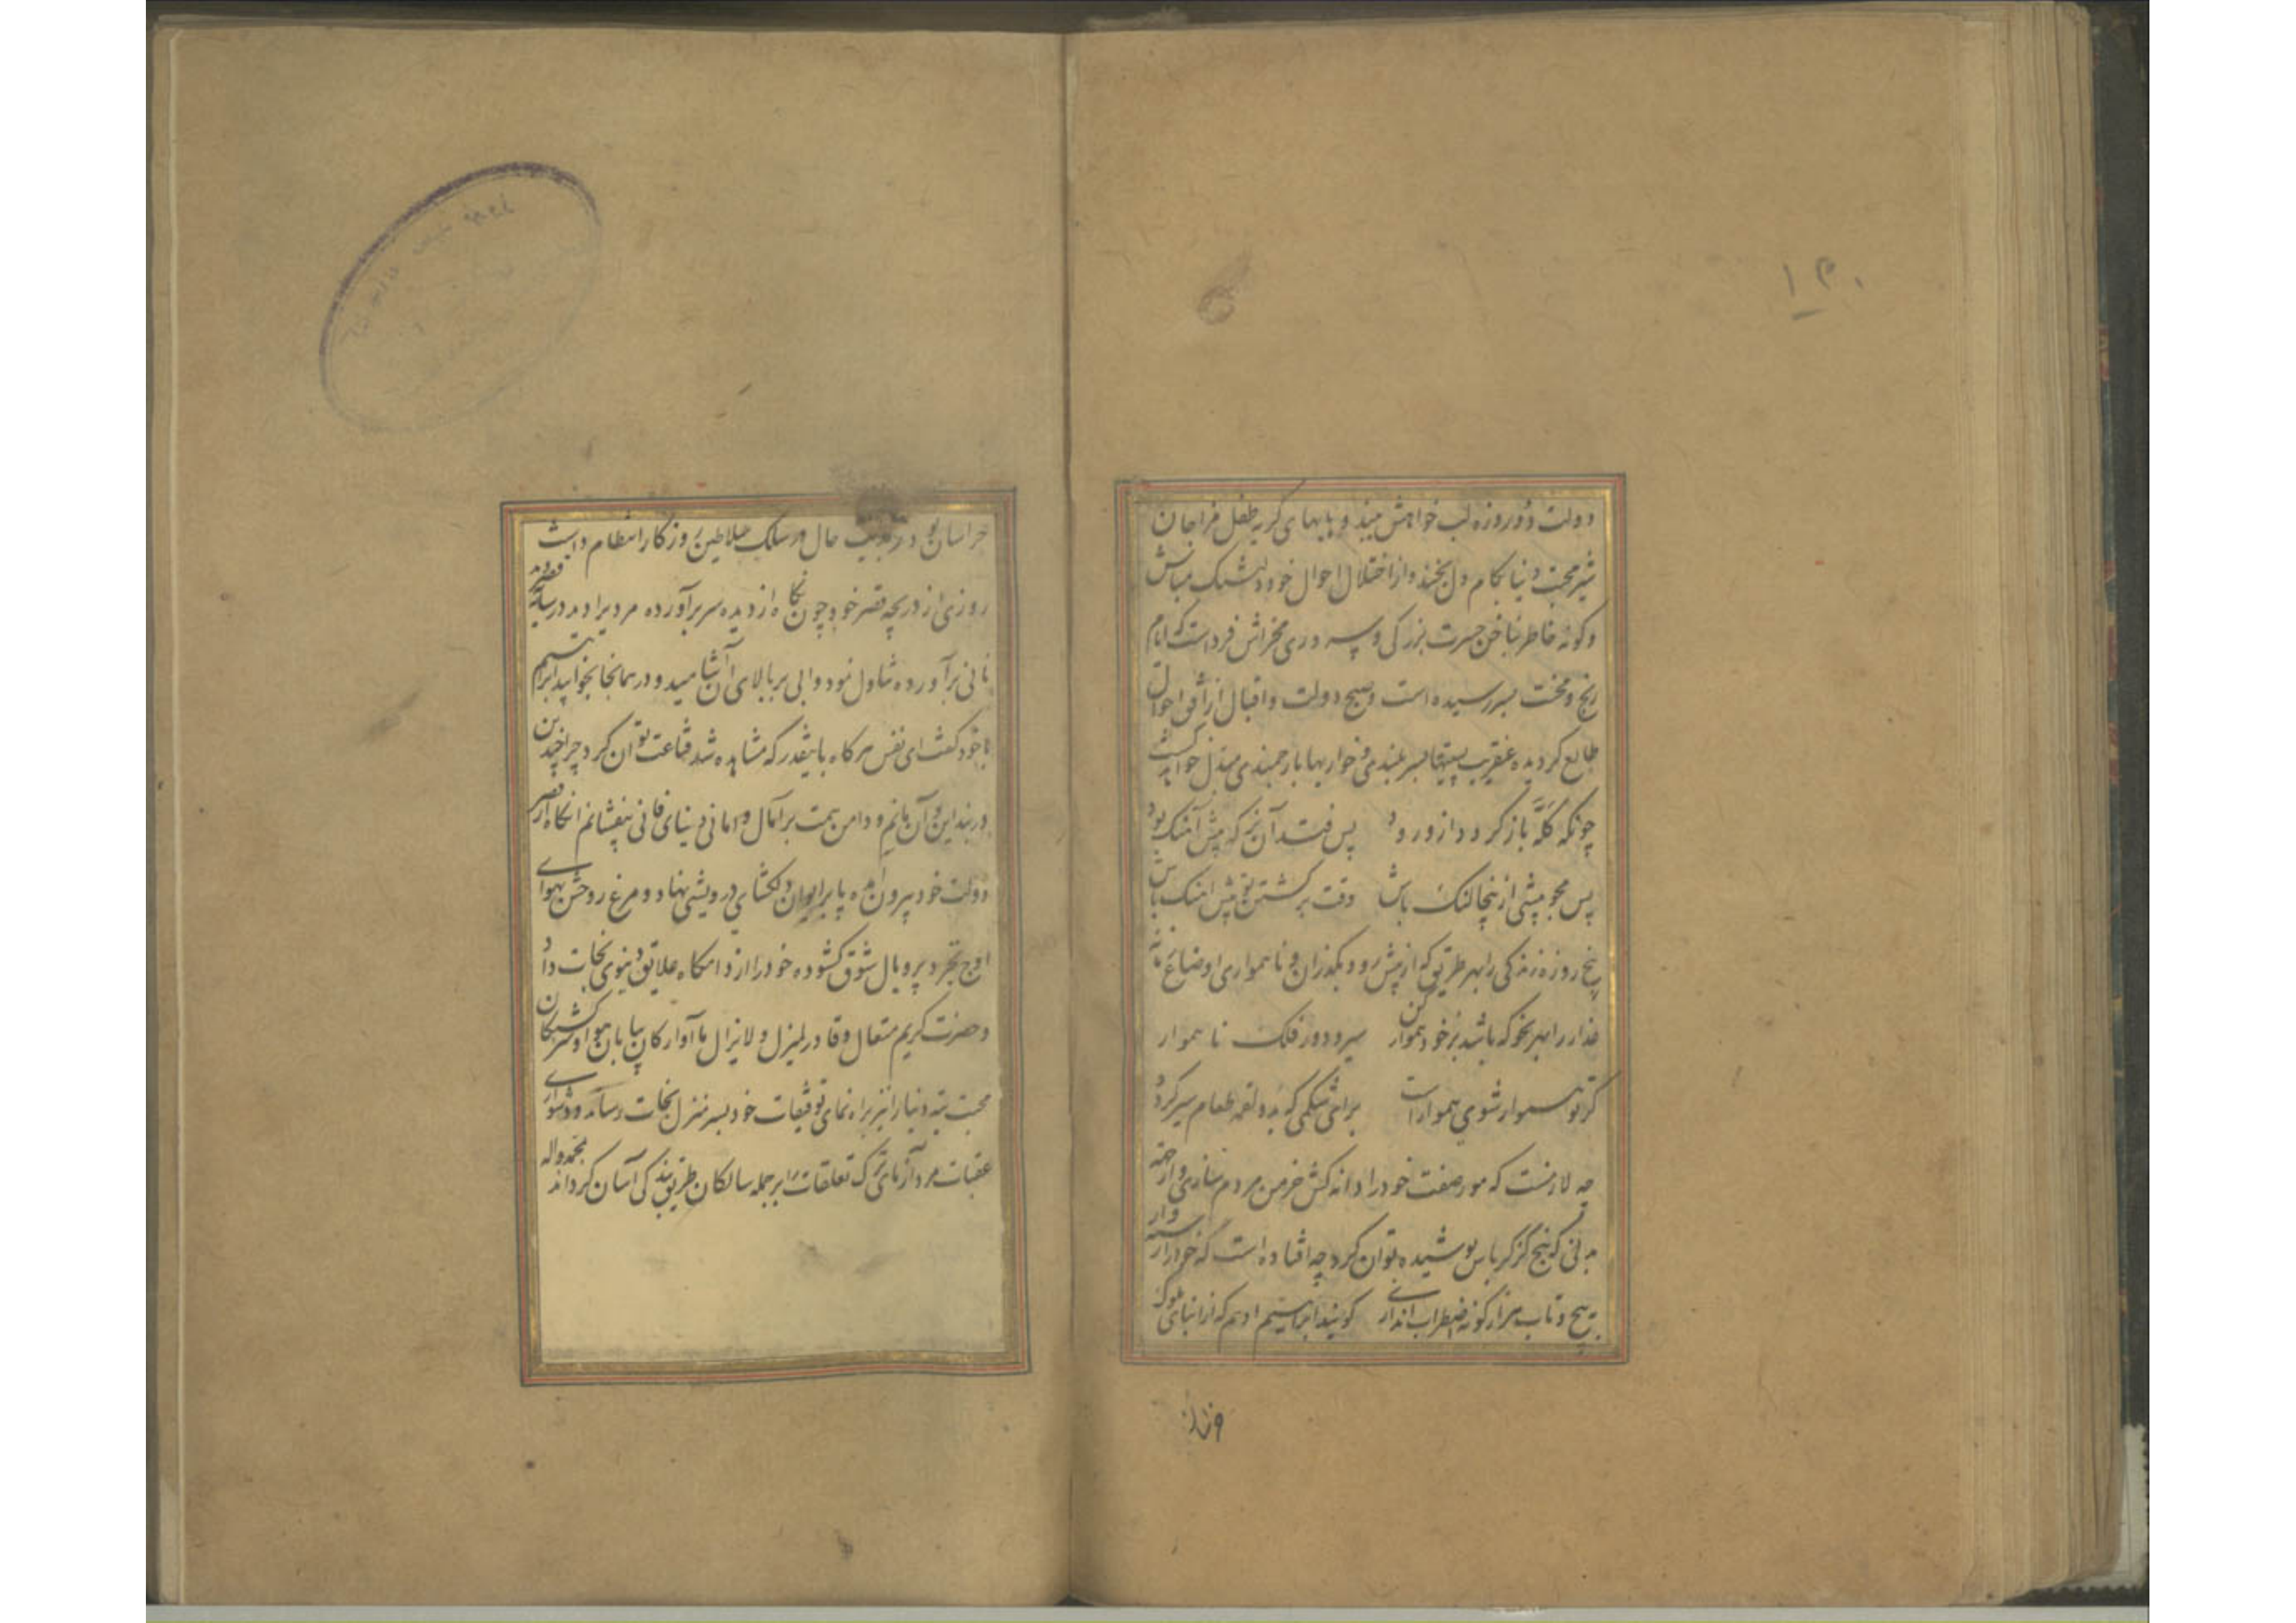 ۱۳۰
دولت دو روزه لب خواهش مبند و بابهای گریه طفل مزاجان
شیر محبت دنیا بکام دل مخند و از اختلال احوال خود دلتنک مباش
و کونه خاطر بناخن حسرت بزرکی و سروری مخراش فرداست که ایام
رنج و محنت بسر رسیده است و صبح دولت و اقبال از افق احوال
طالع کردیده عنقریب پستیها بسربلندی و خواریها بارجمندی مبدل خواهد کشت
چونکه کله باز کردد از ورود پس فتد آن بز که پیش آهنک بود
پس مجو پیشی ازینجا لنک باش وقت بر کشتن تو پیش آهنک باش
پنج روزه زندکی را بهر طریق که از پیش رود بکذران و ناهمواری اوضاع زمانه
غدار را بهر نحو که باشد بر خود هموار کن سیر و دور فلک ناهموار
کر تو هموار شوی هموار است برای شکمی که بدو لقمه طعام سیر کردد
چه لازمست که مور صفت خود را دانه کش خرمن مردم سازی و از جهة
بدنی که پنج کز کرباس پوشیده توان کرد چه افتاده است که خود را رشته وار
به پیچ و تاب هزار کونه اضطراب اندازی کویند ابراهیم ادهم که از ابنای ملوک
خراسان بود در حال در سلک سلاطین روزکار انتظام داشت
روزی از دریچه قصر خود چون نکاه از دیده سر برآورده مردی را دید در سایه قصر که
نانی برآورده تناول نمود و ابی بر بالای آن آشامید و در همانجا بخوابید ابراهیم
باخود کفت ای نفس هرکاه باینقدر که مشاهده شد قناعت توان کرد چرا چندین
در بند این و آن مانم و دامن همت بر آمال و امانی دنیای فانی نیفشانم انکاه از قصر
دولت خود بیرون آمده پا بر ایوان دلکشای درویشی نهاد و مرغ روحش بهوای
اوج تجرد پر و بال شوق کشوده خود را از دامکاه علایق دنیوی نجات داد
و حضرت کریم متعال و قادر لم یزل و لا یزال ما آوارکان بیابان هوا و سرکشتکان
محبت تیه دنیا را نیز براه نمای توفیقات خود بسر منزل نجات رساند و دشواری
عقبات مرد آزمای ترک تعلقات را بر جمله سالکان طریق بندکی آسان کرداند بمحمد و اله